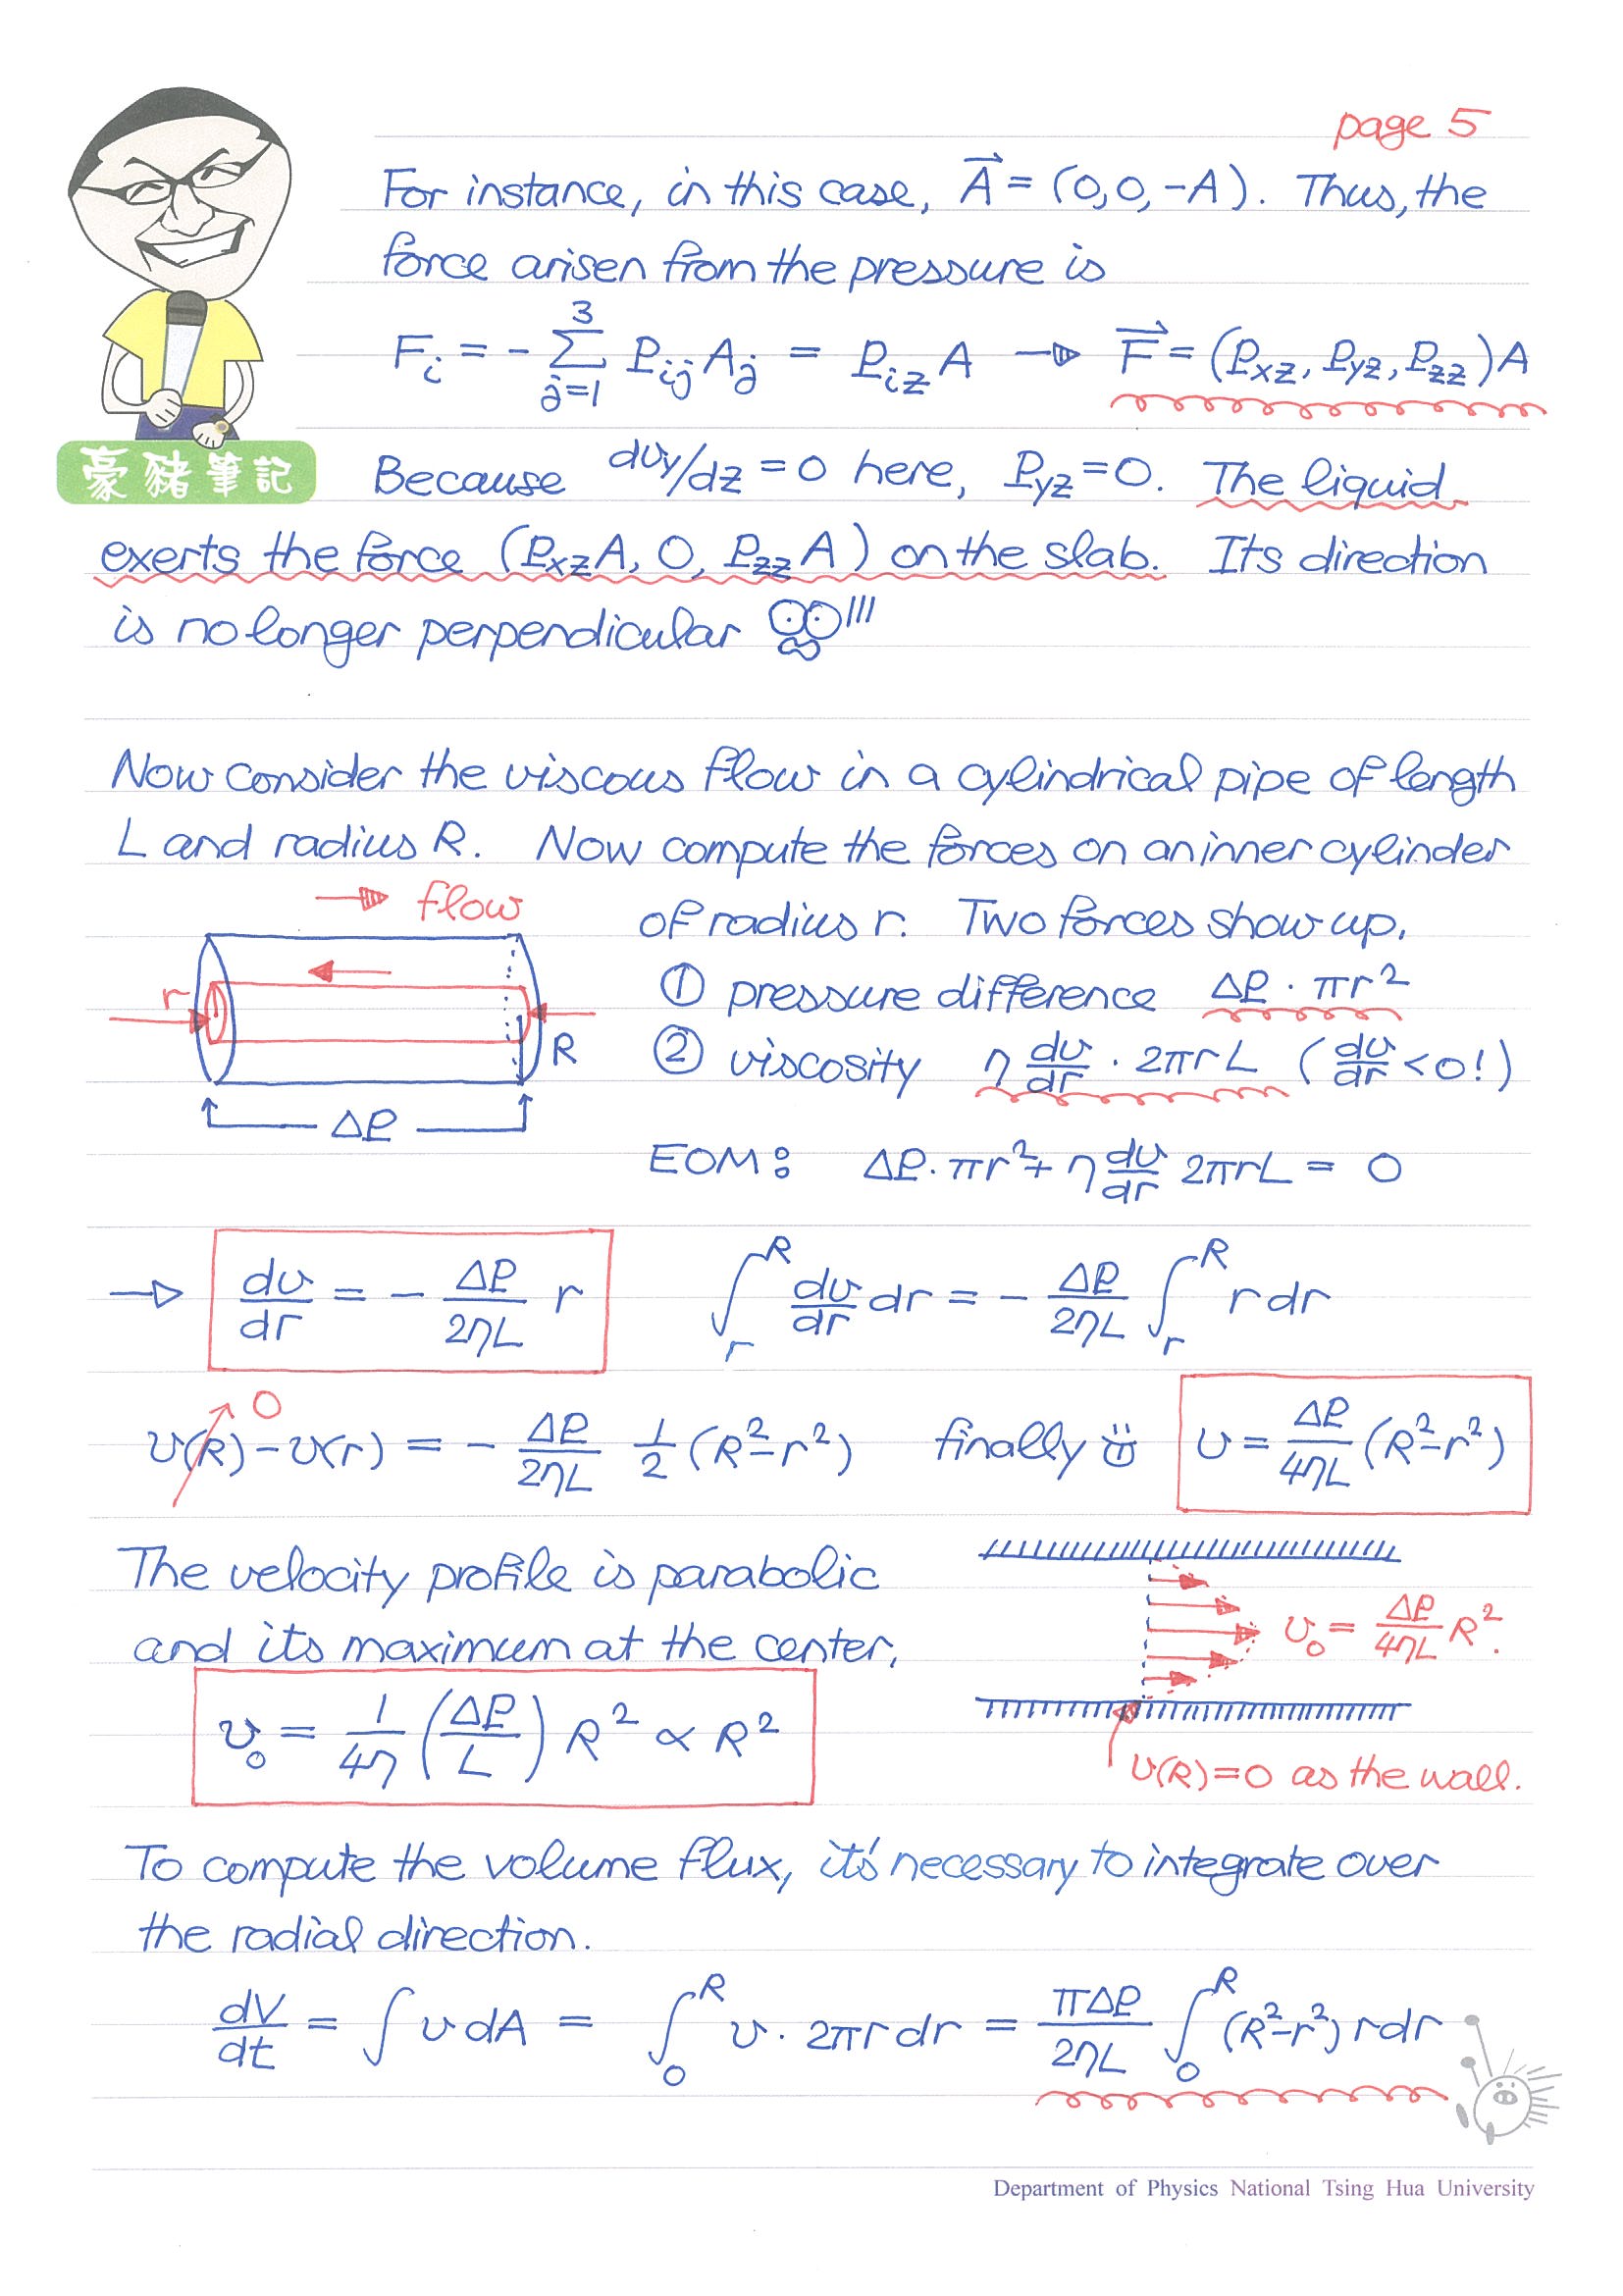 page 5
For instance, in this case, A⃗ = (0,0,-A). Thus, the
force arisen from the pressure is
F_i = - Σ_{j=1}^{3} P_{ij} A_j = P_{iz} A → F⃗ = (P_{xz}, P_{yz}, P_{zz})A
豪豬筆記
Because dv_y/dz = 0 here, P_{yz}=0. The liquid
exerts the force (P_{xz}A, 0, P_{zz}A) on the slab. Its direction
is no longer perpendicular !!!
Now consider the viscous flow in a cylindrical pipe of length
L and radius R. Now compute the forces on an inner cylinder
→ flow
of radius r. Two forces show up.
① pressure difference ΔP · πr²
r
R
② viscosity η dv/dr · 2πrL (dv/dr < 0!)
ΔP
EOM: ΔP·πr² + η dv/dr 2πrL = 0
→ dv/dr = - ΔP/2ηL r ∫_r^R dv/dr dr = - ΔP/2ηL ∫_r^R r dr
0
v(R) - v(r) = - ΔP/2ηL 1/2 (R²-r²) finally v = ΔP/4ηL (R²-r²)
The velocity profile is parabolic
and its maximum at the center,
v₀ = ΔP/4ηL R².
v₀ = 1/4η (ΔP/L) R² ∝ R²
v(R)=0 as the wall.
To compute the volume flux, it's necessary to integrate over
the radial direction.
dV/dt = ∫ v dA = ∫_0^R v · 2πr dr = πΔP/2ηL ∫_0^R (R²-r²) r dr
Department of Physics National Tsing Hua University